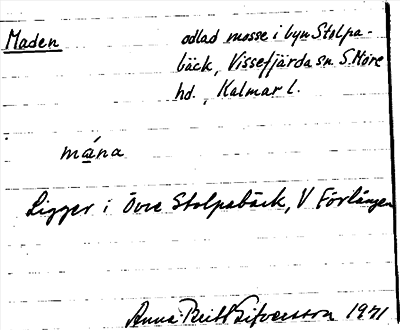 Maden
odlad mosse i byn Stolpa-
bäck, Vissefjärda sn S. Möre
hd., Kalmar l.
mána
Ligger i Övre Stolpabäck, V Förlången
Anna-Britt Sifversson 1971